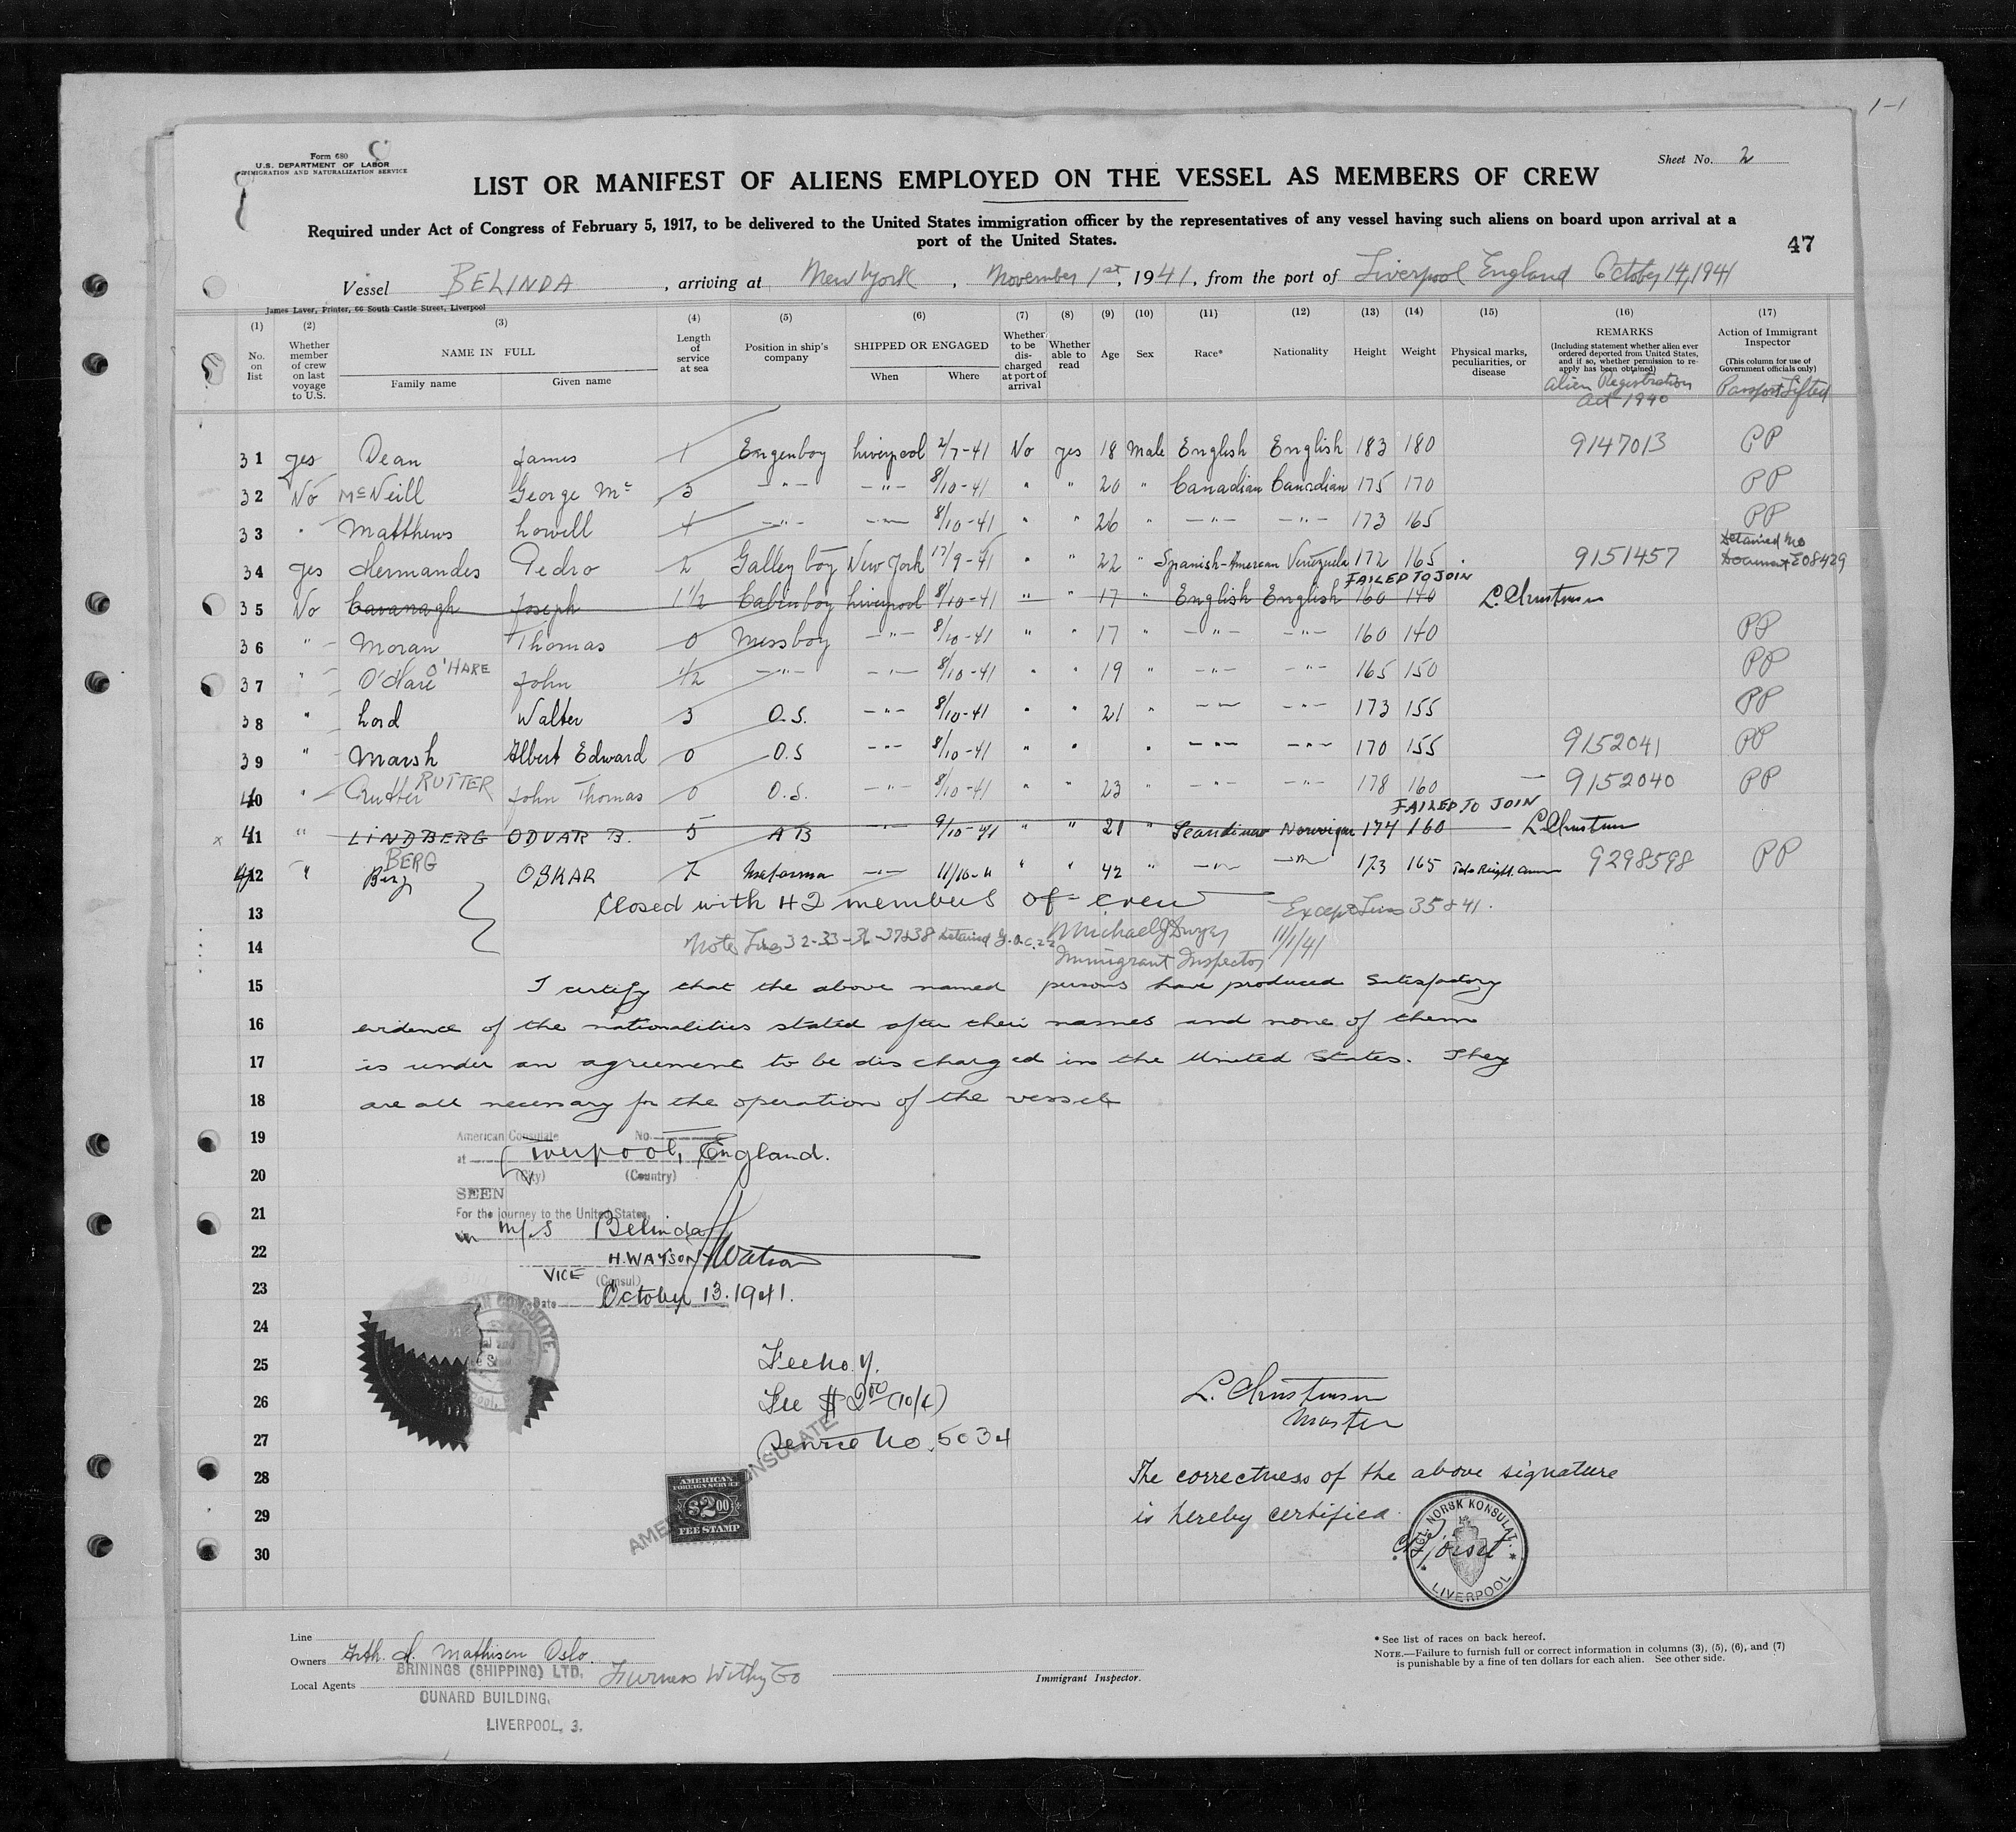 1-1
Form 680
U.S. DEPARTMENT OF LABOR
IMMIGRATION AND NATURALIZATION SERVICE
Sheet No. 2
LIST OR MANIFEST OF ALIENS EMPLOYED ON THE VESSEL AS MEMBERS OF CREW
Required under Act of Congress of February 5, 1917, to be delivered to the United States immigration officer by the representatives of any vessel having such aliens on board upon arrival at a
port of the United States.
47
Vessel BELINDA, arriving at New York, November 1st, 1941, from the port of Liverpool England October 14, 1941
James Laver, Printer, 66 South Castle Street, Liverpool
(1) (2) (3) (4) (5) (6) (7) (8) (9) (10) (11) (12) (13) (14) (15) (16) (17)
No. on list
Whether member of crew on last voyage to U.S.
NAME IN FULL
Family name Given name
Length of service at sea
Position in ship's company
SHIPPED OR ENGAGED
When Where
Whether to be discharged at port of arrival
Whether able to read
Age
Sex
Race*
Nationality
Height
Weight
Physical marks, peculiarities, or disease
REMARKS
(Including statement whether alien ever ordered deported from United States, and if so, whether permission to reapply has been obtained)
Alien Registration Act 1940
Action of Immigrant Inspector
(This column for use of Government officials only)
Passport Lifted
31 yes Dean James 1 Engenboy Liverpool 2/7-41 No yes 18 Male English English 183 180 9147013 PP
32 No McNeill George Mc 3 -"- -"- 8/10-41 " " 20 " Canadian Canadian 175 170 PP
33 " Matthews Lowell 4 -"- -"- 8/10-41 " " 26 " -"- -"- 173 165 PP
34 yes Hermandes Pedro 2 Galley boy New York 17/9-41 " " 22 " Spanish-American Venezuela 172 165 9151457 Detained No Document E08429
FAILED TO JOIN
35 No Cavanagh Joseph 1 1/2 Cabinboy Liverpool 8/10-41 " " 17 " English English 160 140 L. Christensen
36 " Moran Thomas 0 Messboy -"- 8/10-41 " " 17 " -"- -"- 160 140 PP
37 " O'Hare O'HARE John 1/2 -"- -"- 8/10-41 " " 19 " -"- -"- 165 150 PP
38 " Lord Walter 3 O.S. -"- 8/10-41 " " 21 " -"- -"- 173 155 PP
39 " Marsh Albert Edward 0 O.S -"- 8/10-41 " " " -"- -"- 170 155 9152041 PP
40 " Rutter RUTTER John Thomas 0 O.S. -"- 8/10-41 " " 23 " -"- -"- 178 160 9152040 PP
FAILED TO JOIN
x 41 " LINDBERG ODVAR B. 5 AB " 9/10-41 " " 21 " Scandinav Norwigan 174 160 L. Christensen
BERG
42 " Berg OSKAR 7 -"- 11/10-41 " " 42 " -"- -"- 173 165 9298598 PP
13 Closed with 42 members of crew Except Lines 35 & 41.
14 Note Lines 32-33-36-37&38 Detained Michael J Dwyer 11/1/41
Immigrant Inspector
15 I certify that the above named persons have produced satisfactory
16 evidence of the nationalities stated after their names and none of them
17 is under an agreement to be discharged in the United States. They
18 are all necessary for the operation of the vessel
19 American Consulate No.
at Liverpool, England.
20 (City) (Country)
SEEN
21 For the journey to the United States,
in M/S Belinda
22 H. WATSON HWatson
VICE (Consul)
23 Date October 13. 1941.
24
25 Fee No. 4.
26 Fee $2.00 (10/4)
27 Service No. 5034
L. Christensen
Master
28 The correctness of the above signature
29 is hereby certified
30
AMERICAN CONSULATE
AMERICAN
FOREIGN SERVICE
$2.00
FEE STAMP
KGL. NORSK KONSULAT.
LIVERPOOL
Line
Owners Arth. H. Mathisen Oslo.
BRININGS (SHIPPING) LTD.
Local Agents Furness Withy Co
CUNARD BUILDING,
LIVERPOOL, 3.
Immigrant Inspector.
* See list of races on back hereof.
NOTE.—Failure to furnish full or correct information in columns (3), (5), (6), and (7)
is punishable by a fine of ten dollars for each alien. See other side.